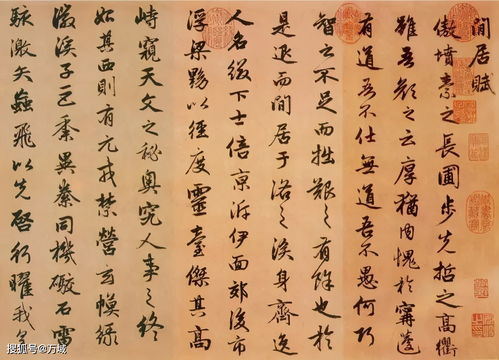 閒居賦
傲墳素之長圃步先哲之高衢
雖吾顏之云厚猶內愧於甯蘧
有道吾不仕無道吾不愚何巧
智之不足而拙艱之有餘也於
是退而閒居于洛之涘身齊逸
人名綴下士倍京泝伊面郊後市
浮梁黝以徑度靈臺傑其高
峙窺天文之秘奧究人事之終
始其西則有元戎禁營玄幙綠
徽溪子巨黍異絭同機礮石雷
駭激矢蝱飛以先啓行耀我
搜狐号@万域